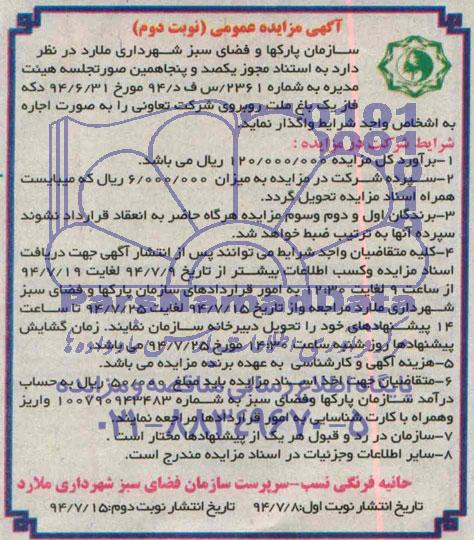 آگهی مزایده عمومی (نوبت دوم)
سازمان پارکها و فضای سبز شهرداری ملارد در نظر
دارد به استناد مجوز یکصد و پنجاهمین صورتجلسه هیئت
مدیره به شماره ۲۳۶۱/س ف د/۹۴ مورخ ۹۴/۶/۳۱ دکه
فاز یک باغ ملت روبروی شرکت تعاونی را به صورت اجاره
به اشخاص واجد شرایط واگذار نماید.
شرایط شرکت در مزایده :
۱-برآورد کل مزایده ۱۲۰/۰۰۰/۰۰۰ ریال می باشد.
۲-سپرده شرکت در مزایده به میزان ۶/۰۰۰/۰۰۰ ریال که میبایست
همراه اسناد مزایده تحویل گردد.
۳-برندگان اول و دوم وسوم مزایده هرگاه حاضر به انعقاد قرارداد نشوند
سپرده آنها به ترتیب ضبط خواهد شد.
۴-کلیه متقاضیان واجد شرایط می توانند پس از انتشار آگهی جهت دریافت
اسناد مزایده وکسب اطلاعات بیشتر از تاریخ ۹۴/۷/۹ لغایت ۹۴/۷/۱۹
از ساعت ۹ لغایت ۱۲:۳۰ به امور قراردادهای سازمان پارکها و فضای سبز
شهرداری ملارد مراجعه واز تاریخ ۹۴/۷/۱۵ لغایت ۹۴/۷/۲۵ تا ساعت
۱۴ پیشنهادهای خود را تحویل دبیرخانه سازمان نمایند. زمان گشایش
پیشنهادها روز شنبه ساعت ۱۴:۳۰ مورخ ۹۴/۷/۲۵ می باشد.
۵-هزینه آگهی و کارشناسی به عهده برنده مزایده می باشد.
۶-متقاضیان جهت اخذ اسناد مزایده باید مبلغ ریال به حساب
درآمد سازمان پارکها وفضای سبز به شماره ۱۰۰۷۹۰۹۴۳۴۸۳ واریز
وهمراه با کارت شناسایی به امور قراردادها مراجعه نمایند.
۷-سازمان در رد و قبول هر یک از پیشنهادها مختار است.
۸-سایر اطلاعات وجزئیات در اسناد مزایده مندرج است.
حانیه فرنگی نسب-سرپرست سازمان فضای سبز شهرداری ملارد
تاریخ انتشار نوبت اول: ۹۴/۷/۸ تاریخ انتشار نوبت دوم: ۹۴/۷/۱۵
ParsNamadData
۰۲۱-۸۸۳۴۹۶۷۰-۵